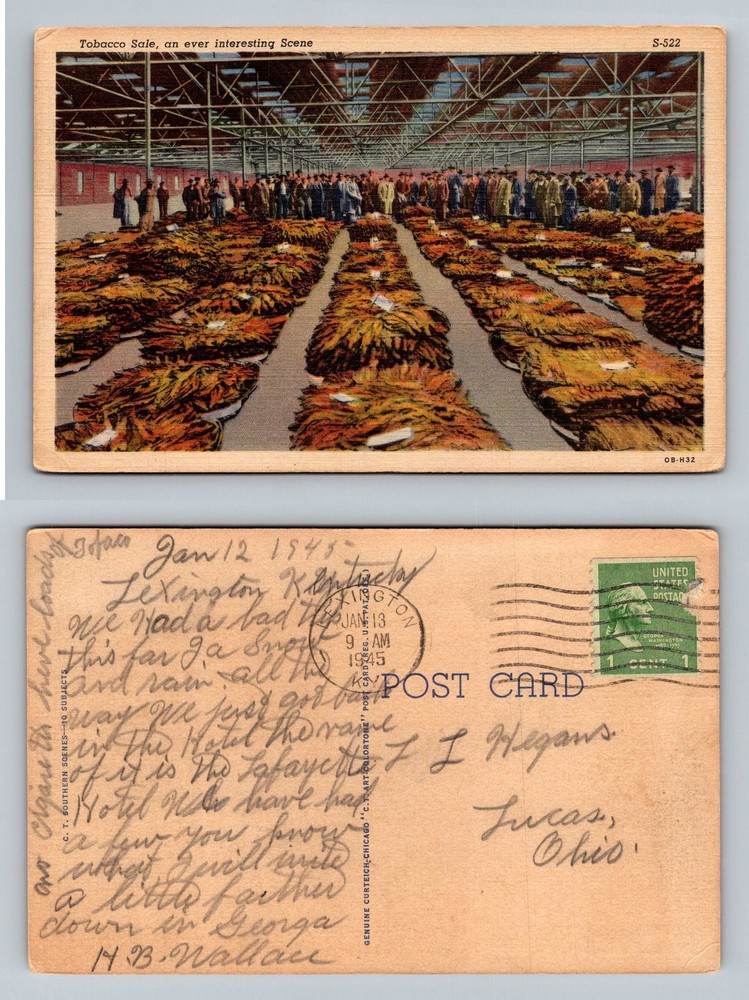 Tobacco Sale, an ever interesting Scene
S-522
OB-H32
Jan 12 1945
Lexington Kentucky
We Had a bad trip
this far Ia. Snow
and rain all the
way We just got back
in the Hotel the name
of it is The Lafayette
Hotel We have had
a few you know
what I will write
a little farther
down in Georga
H. B. Wallace
no cigaretts here loads of
C. T. SOUTHERN SCENES—10 SUBJECTS
GENUINE CURTEICH-CHICAGO "C. T. ART-COLORTONE" POST CARD (REG. U.S. PAT. OFF.)
LEXINGTON
JAN 13
9 AM
1945
KY
UNITED
STATES
POSTAG
GEORGE
WASHINGTON
1 CENT 1
POST CARD
L L Hegans.
Lucas,
Ohio.